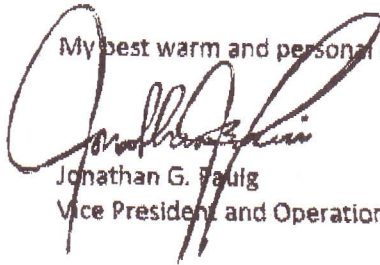 My best warm and personal
Jonathan G. Paulg
Vice President and Operation